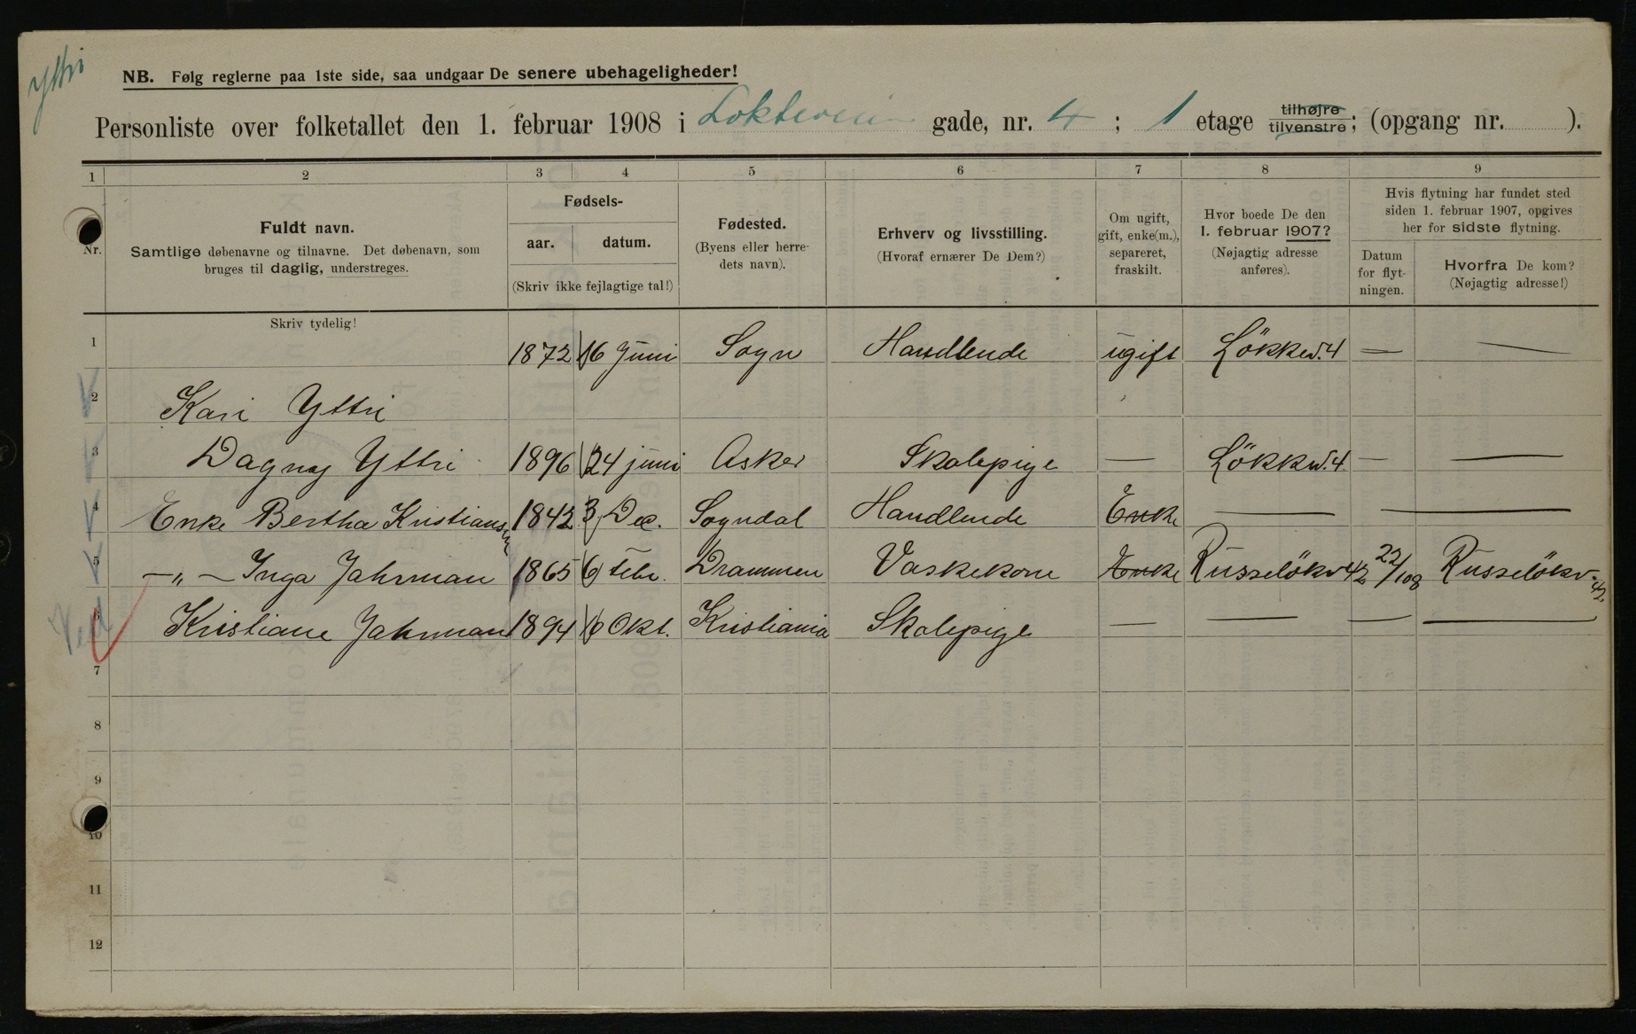 Yttri
NB. Følg reglerne paa 1ste side, saa undgaar De senere ubehageligheder!
Personliste over folketallet den 1. februar 1908 i Løkkeveien gade, nr. 4 ; 1 etage tilhøjre tilvenstre; (opgang nr. ).
1 2 3 4 5 6 7 8 9
Nr.
Fuldt navn.
Samtlige døbenavne og tilnavne. Det døbenavn, som
bruges til daglig, understreges.
Fødsels-
aar. datum.
(Skriv ikke fejlagtige tal!)
Fødested.
(Byens eller herre-
dets navn).
Erhverv og livsstilling.
(Hvoraf ernærer De Dem?)
Om ugift,
gift, enke(m.),
separeret,
fraskilt.
Hvor boede De den
1. februar 1907?
(Nøjagtig adresse
anføres).
Hvis flytning har fundet sted
siden 1. februar 1907, opgives
her for sidste flytning.
Datum
for flyt-
ningen.
Hvorfra De kom?
(Nøjagtig adresse!)
Skriv tydelig!
1 1872 16 Juni Sogn Handlende ugift Løkkev. 4 — —
2 Kari Yttri
3 Dagny Yttri 1896 24 juni Asker Skolepige — Løkkv. 4 — —
4 Enke Bertha Kristiansen 1842 3 Dec. Sogndal Handlende Enke — —
5 —„— Inga Jahrman 1865 6 Febr. Drammen Vaskekone Enke Russeløkv 42 22/1 08 Russeløkv. 42
Kristiane Jahrman 1894 6 Okt. Kristiania Skolepige — — — —
7
8
9
10
11
12